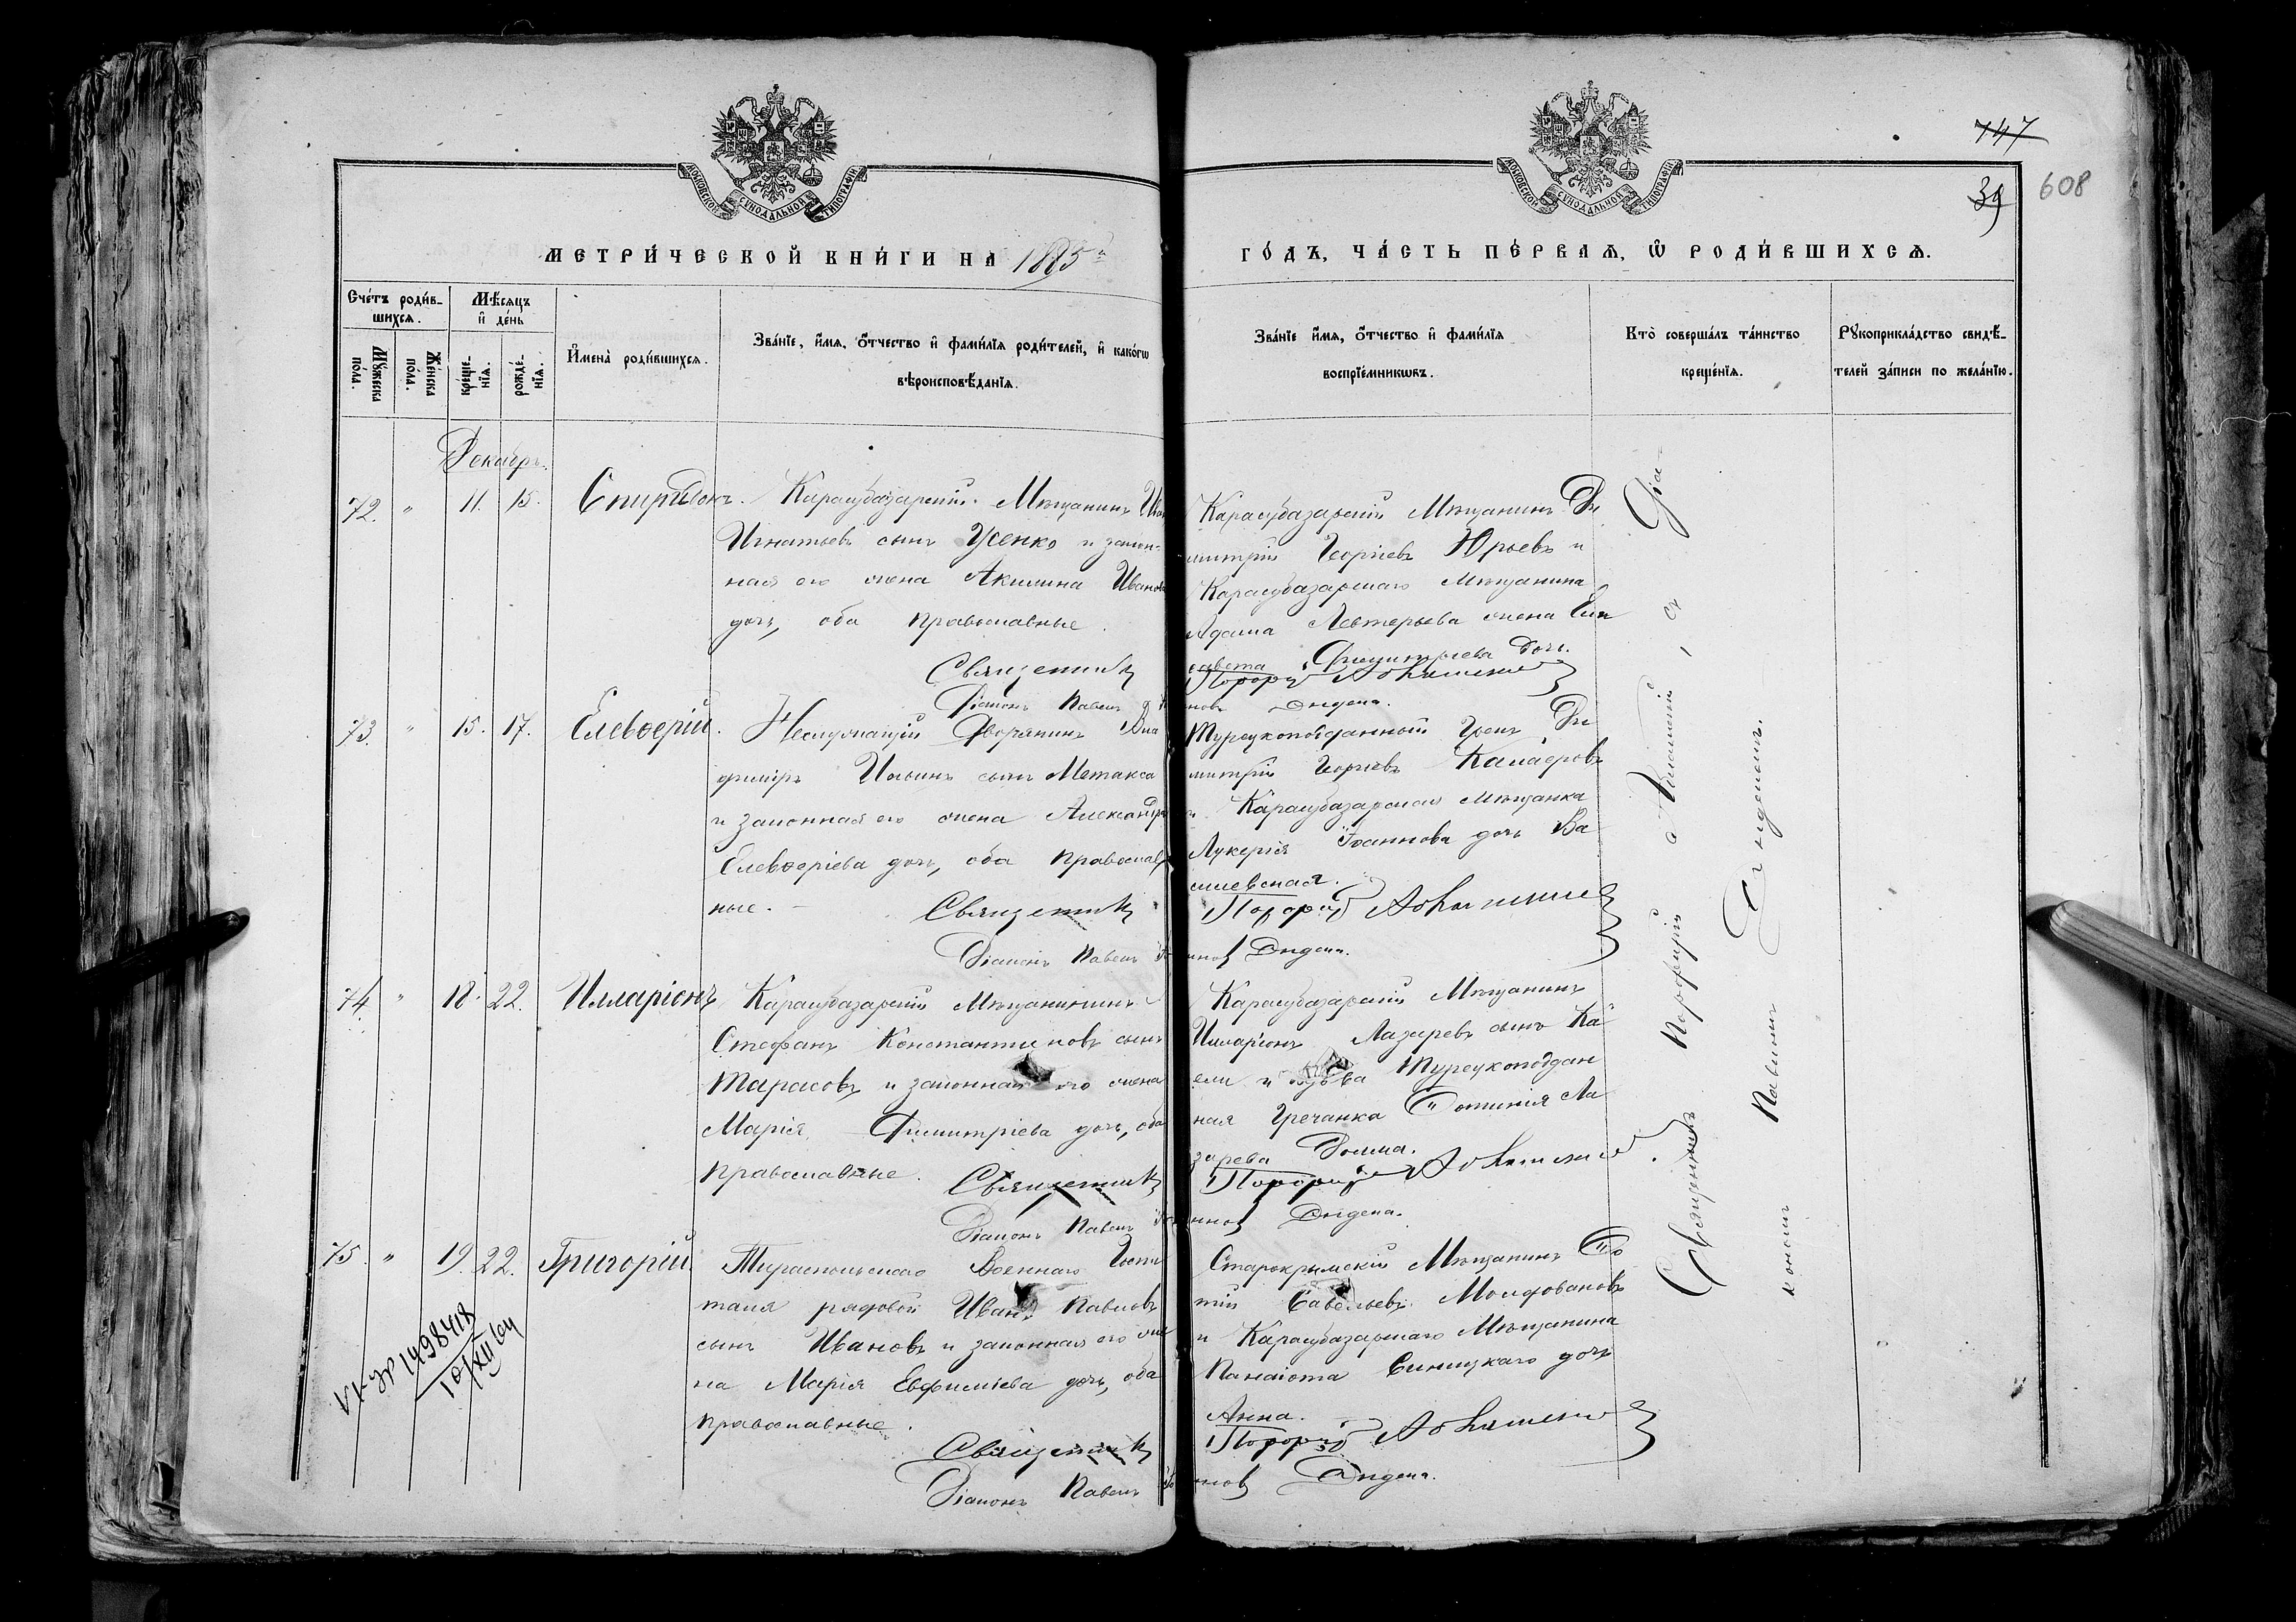 147
39
608
МОСКОВСКОЙ СѴНОДАЛЬНОЙ ТИПОГРАФІИ
МОСКОВСКОЙ СѴНОДАЛЬНОЙ ТИПОГРАФІИ
МЕТРИ́ЧЕСКОЙ КНИ́ГИ НА 1885
ГО́ДЪ, ЧА́СТЬ ПЕ́РВАѦ, Ѿ РОДИ́ВШИХСѦ.
Счётъ роди́в-
шихсѧ.
Мꙋжеска пола.
Женска пола.
Мѣ́сѧцъ
и де́нь
креще́-
нїѧ.
рожде́-
нїѧ.
Имена̀ роди́вшихсѧ.
Зва́нїе, имѧ, о́тчество и фами́лїѧ роди́телей, и како́гѡ
вѣроисповѣ́данїѧ.
Зва́нїе имѧ, о́тчество и фами́лїѧ
воспрїе́мникѡвъ.
Кто̀ соверша́лъ та́инство
креще́нїѧ.
Рꙋкоприкла́дство свидѣ́-
телей за́писи по жела́нїю.
Декабрь.
72. " 11. 15. Спиридонъ. Карасубазарскій Мѣщанинъ
Игнатьевъ сынъ Усенко и закон-
ная его жена Акилина Иванова
дочь, оба православные.
Священникъ
Діаконъ Павелъ
Карасубазарскій Мѣщанинъ Ди
митрій Георгіевъ Юрьевъ и
Карасубазарскаго Мѣщанина
Адама Левтерьева жена Ели
савета Димитріева дочь.
Порфирій
новъ Дидена.
73. " 15. 17. Елевѳерій. Неслужащій Дворянинъ Вла
димиръ Ильинъ сынъ Метакса
и законная его жена Александра
Елевѳеріева дочь, оба православ
ные. Священникъ
Діаконъ Павелъ
Турецкоподданный Грекъ Ди
митрій Георгіевъ
и Карасубазарская Мѣщанка
Лукерія Іоаннова дочь Ва
силевская.
Порфирій
новъ Дидена.
74. " 18. 22. Илларіонъ Карасубазарскій Мѣщанинъ
Стефанъ Константиновъ сынъ
Тарасовъ и законная его жена
Марія Димитріева дочь, оба
православные. Священникъ
Діаконъ Павелъ
Карасубазарскій Мѣщанинъ
Илларіонъ Лазаревъ сынъ Ка
ели и Турецкоподдан
ная Гречанка Фотинія Ла
зарева
Порфирій
нновъ Дидена.
75. " 19. 22. Григорій Тираспольскаго Военнаго Госпи
таля рядовой Иванъ Павловъ
сынъ Ивановъ и законная его же
на Марія Евфиміева дочь, оба
православные.
Священникъ
Діаконъ Павелъ
Старокрымскій Мѣщанинъ Фо
тій Савельевъ Молдовановъ
и Карасубазарскаго Мѣщанина
Панаіота Синицкаго дочь
Анна.
Порфирій
новъ Дидена.
Священникъ Порфирій съ Діа-
кономъ Павломъ Дидепомъ.
1498418
10/XII 64